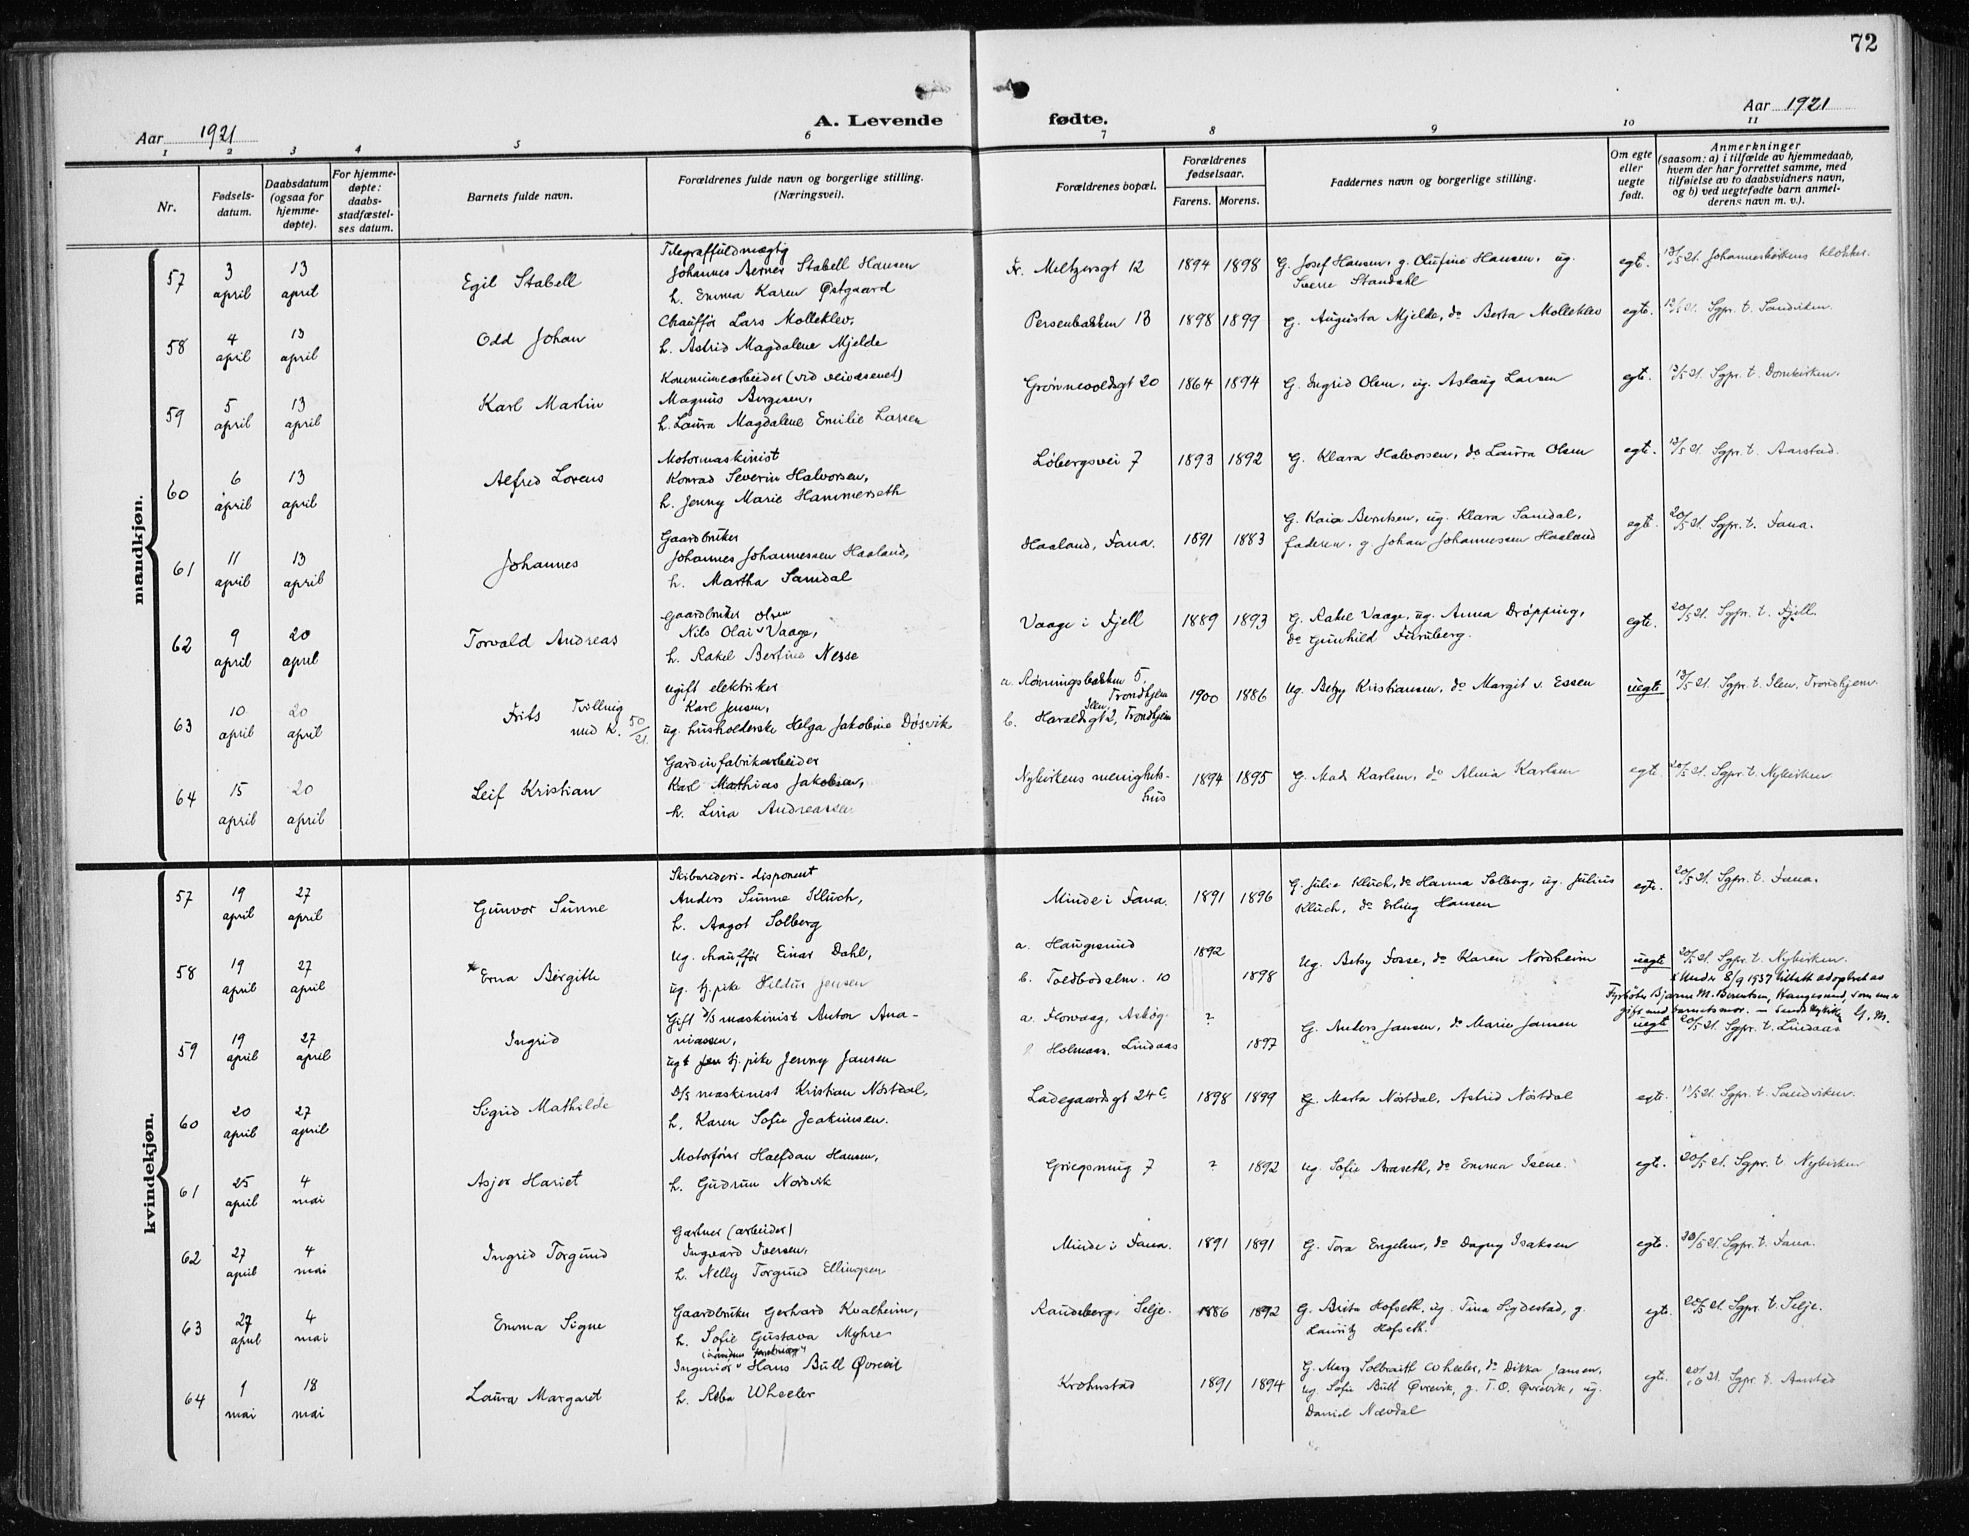 72
Aar 1921
A. Levende fødte.
Aar 1921
1 2 3 4 5 6 7 8 9 10 11
Nr.
Fødsels-
datum.
Daabsdatum
(ogsaa for
hjemme-
døpte).
For hjemme-
døpte:
daabs-
stadfæstel-
ses datum.
Barnets fulde navn.
Forældrenes fulde navn og borgerlige stilling.
(Næringsvei).
Forældrenes bopæl.
Forældrenes
fødselsaar.
Farens. Morens.
Faddernes navn og borgerlige stilling.
Om egte
eller
uegte
født.
Anmerkninger
(saasom: a) i tilfælde av hjemmedaab,
hvem der har forrettet samme, med
tilføielse av to daabsvidners navn,
og b) ved uegtefødte barn anmel-
derens navn m. v.).
mandkjøn.
57
3
april
13
april
Egil Stabell
Telegraffuldmægtig
Johannes Stabell Hansen
h. Emma Karen Østgaard
Fr. Meltzersgt 12
1894 1898
G. Josef Hansen, g. Olufine Hansen, ug.
Sverre Standahl
egte.
13/5 21. Johanneskirkens klokker.
58
4
april
13
april
Odd Johan
Chauffør Lars Molleklev,
h. Astrid Magdalene Mjelde
Persenbakken 13
1898 1899
G. Augusta Mjelde, do Berta Molleklev
egte.
Sgpr. t. Sandviken.
59
5
april
13
april
Karl Martin
Kommunearbeider (ved veivæsenet)
Magnus Bergesen,
h. Laura Magdalene Emilie Larsen
Grønnevoldsgt 20
1864 1894
G. Ingrid Olsen, ug. Aslaug Larsen
egte.
13/5 21. Sgpr. t. Domkirken.
60
6
april
13
april
Alfred Lorens
Motormaskinist
Konrad Severin Halvorsen,
h. Jenny Marie Hammerseth
Løbergsvei 7
1893 1892
G. Klara Halvorsen, do Laura Olsen
egte.
13/5 21. Sgpr. t. Aarstad.
61
11
april
13
april
Johannes
Gaardbruker
Johannes Johannessen Haaland,
h. Martha Samdal
Haaland, Fana.
1891 1883
G. Kaia Berntsen, ug. Klara Samdal,
faderen, g. Johan Johannessen Haaland
egte.
20/5 21. Sgpr. t. Fana.
62
9
april
20
april
Torvald Andreas
Gaardbruker Olsen
Nils Olai Vaage,
h. Rakel Bertine Nesse
Vaage i Fjell
1889 1893
G. Rakel Vaage, ug. Anna Drøpping,
do Gunhild Furuberg.
egte.
20/5 21. Sgpr. t. Fjell.
63
10
april
20
april
Frits Tvilling
med K. 50/21.
ugift elektriker
Karl Jensen,
ug. husholderske Helga Jakobine Døsvik
a. Rønningsbakken 5,
Ilen, Trondhjem
b. Haraldsgt 2, Trondhjem
1900 1886
Ug. Betzy Kristiansen, do Margit v. Essen
uegte
13/5 21. Sgpr. t. Ilen, Trondhjem.
64
15
april
20
april
Leif Kristian
Gardinfabrikarbeider
Karl Mathias Jakobsen,
h. Lina Andreassen
Nykirkens menighets-
hus
1894 1895
G. Mad Karlsen, do Alma Karlsen
egte.
20/5 21. Sgpr. t. Nykirken
kvindekjøn.
57
19
april
27
april
Gunvor Sunne
Skibsrederi-disponent
Anders Sunne Kluch,
h. Aagot Solberg
Minde i Fana.
1891 1896
G. Julie Kluch, do Hanna Solberg, ug. Julius
Kluch, do Erling Hansen
egte.
20/5 21. Sgpr. t. Fana.
58
19
april
27
april
* Erna Bergitte
Ug. chauffør Einar Dahl,
ug. tj.pike Hildur Jensen
a. Haugesund
b. Toldbodalm. 10
1892
1898
Ug. Betsy Fosse, do Karen Nordheim
uegte
20/5 21. Sgpr. t. Nykirken.
x Under 8/9 1937 tillatt adoptert av
Fyrbøter Bjarne M. Berentsen, Haugesund, som er
gift med barnets mor.
59
19
april
27
april
Ingrid
Gift D/S maskinist Anton Ana-
niassen,
ugt tj.pike Jenny Jansen
a. Florvaag, Askøy
Holmaas, Lindaas
?
1897
G. Anders Jansen, do Marie Jansen
uegte
20/5 21. Sgpr. t. Lindaas
60
20
april
27
april
Sigrid Mathilde
D/S maskinist Kristian Nøstdal,
h. Karen Sofie Joakimsen.
Ladegaardsgt 24c
1898 1899
G. Marta Nøstdal, Astrid Nøstdal
egte.
13/5 21. Sgpr. t. Sandviken.
61
25
april
4
mai
Asjer Hariet
Motorfører Halfdan Hansen,
h. Gudrun Nordvik
Griegsmug 7
? 1892
Ug. Sofie Araseth, do Emma Isene.
egte.
20/5 21. Sgpr. t. Nykirken
62
27
april
4
mai
Ingrid Torgund
Gartner (arbeider)
Ingvard Iversen,
h. Nelly Torgund Ellingsen
Minde i Fana.
1891 1891
G. Tora Engelsen, do Dagny Isaksen
egte.
20/5 21. Sgpr. t. Fana.
63
27
april
4
mai
Emma Signe
Gaardbruker Gerhard Kvalheim,
h. Sofie Gustava Myhre
Raudeberg, Selje.
1886 1892
G. Brita Hofseth, ug. Tina Sigdestad, g.
Lauritz Hofseth.
egte.
20/5 21. Sgpr. t. Selje.
64
1
mai
18
mai
Laura Margaret
Ingeniør Hans Bull Øvrevik
h. Reba Wheeler
Krohnstad
1891 1894
G. Mary Solbraith Wheeler, do Dikka Jansen,
ug. Sofie Bull Øvrevik, g. T.O. Øvrevik, ug.
David Nævdal
egte.
20/6 21. Sgpr. t. Aarstad